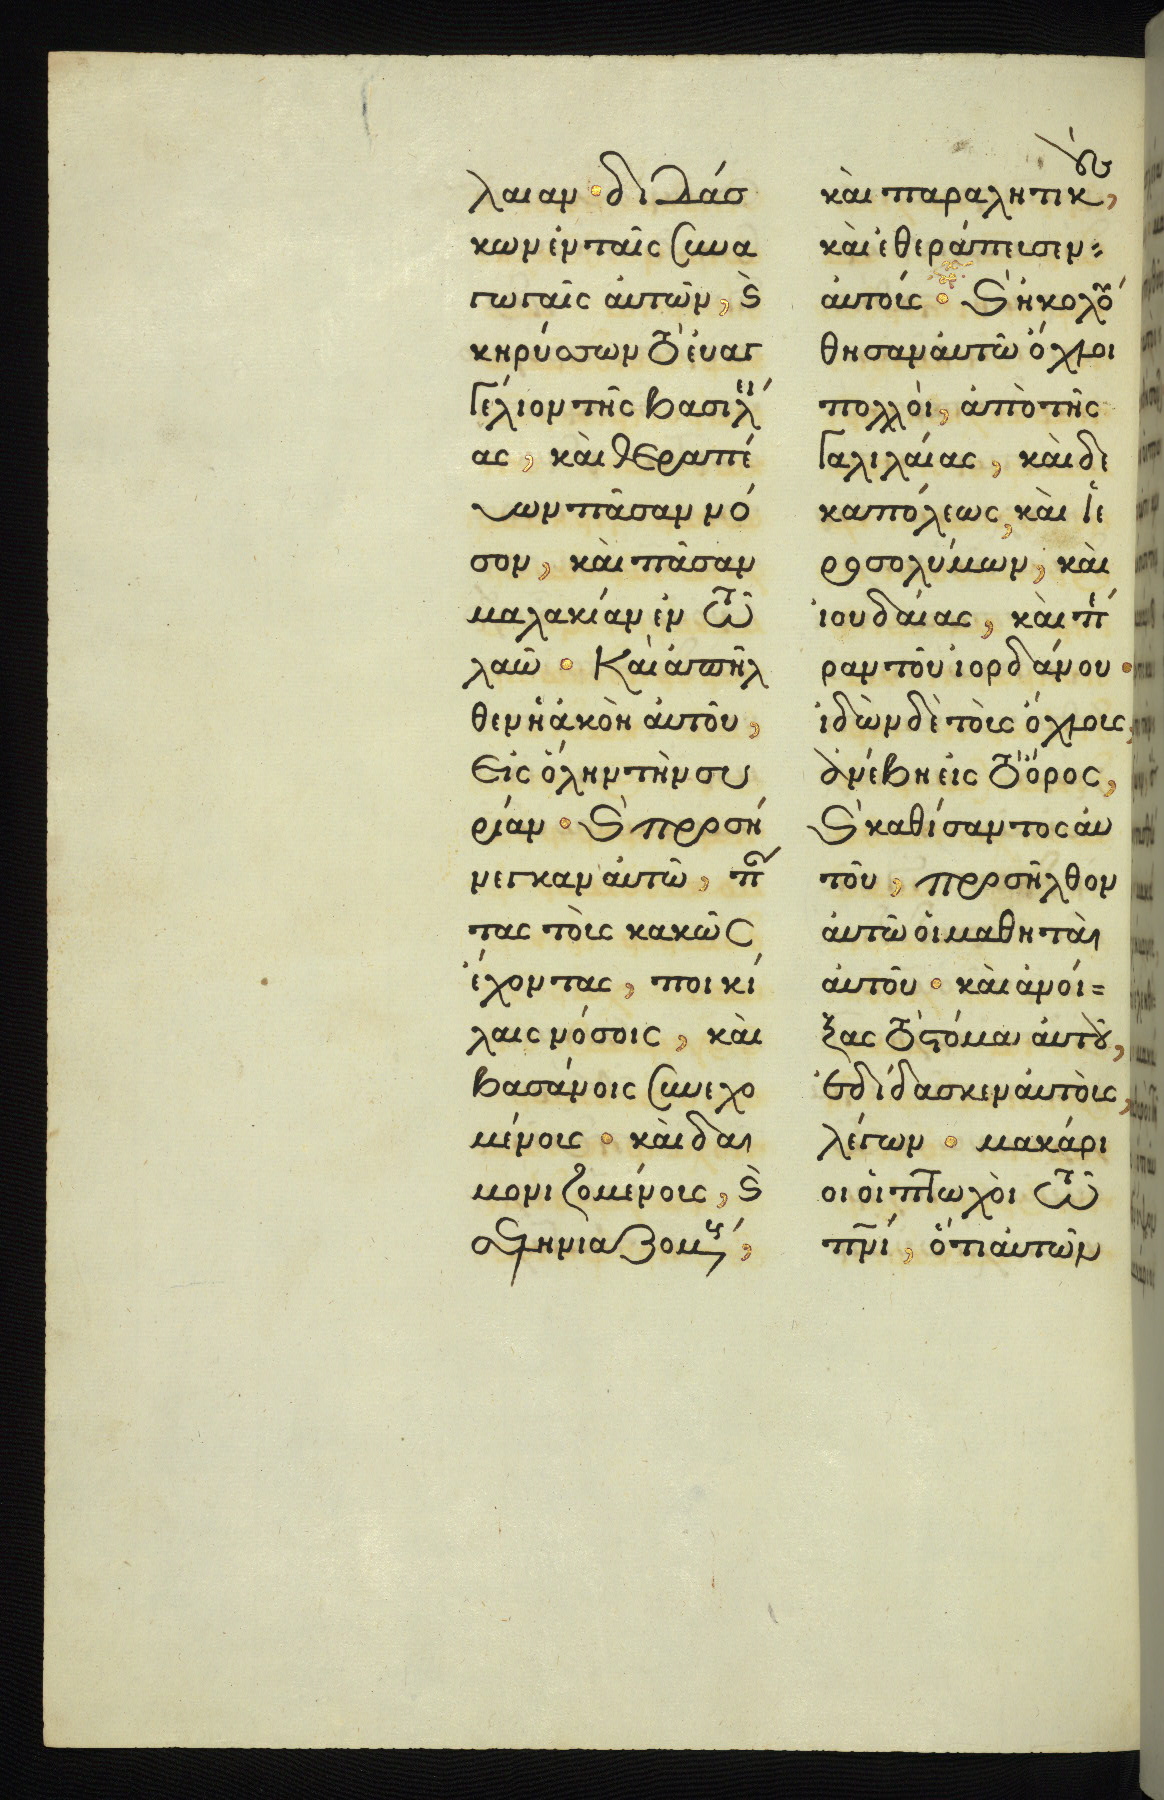 λαιαν · διδάσ
κων ἐν ταῖς συνα
γωγαῖς ἀυτῶν, ϛ̀
κηρύσσων τὸ ἐυαγ
γέλιον τῆς βασιλεί
ας, καὶ θεραπέ
υων πᾶσαν νό
σον, καὶ πᾶσαν
μαλακίαν ἐν τῶ
λαῶ · Καὶ ἀπῆλ
θεν ἡ ἀκοὴ ἀυτοῦ,
εἰς ὅλην τὴν συ
ρίαν · ϛ̀ προσή
νεγκαν ἀυτῶ, πάν
τας τοὺς κακῶς
ἔχοντας, ποικί
λαις νόσοις, καὶ
βασάνοις συνεχο
μένους · καὶ δαι
μονιζομένους, ϛ̀
σεληνιαζομένους,
καὶ παραλυτικοὺς,
καὶ ἐθεράπευσεν=
ἀυτούς · ϛ̀ ἠκολού
θησαν ἀυτῶ ὄχλοι
πολλοὶ, ἀπὸ τῆς
Γαλιλαίας, καὶ δε
καπόλεως, καὶ ἱε
ροσολύμων, καὶ
ἰουδαίας, καὶ πέ
ραν τοῦ ἰορδάνου ·
ἰδὼν δὲ τοὺς ὄχλους,
ἀνέβη εἰς τὸ ὄρος,
ϛ̀ καθίσαντος ἀυ
τοῦ, προσῆλθον
ἀυτῶ ὁι μαθηταὶ
ἀυτοῦ · καὶ ἀνοί=
ξας τὸ στόμα ἀυτοῦ,
ἐδίδασκεν ἀυτοὺς,
λέγων · μακάρι
οι ὁι πτωχοὶ τῶ
πνι, ὅτι ἀυτῶν